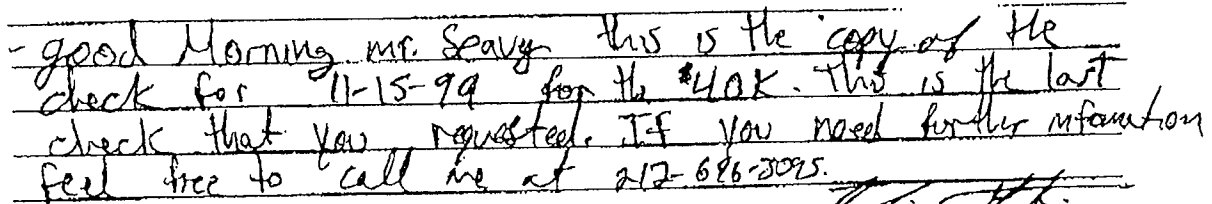 - good Morning mr. Seavy this is the copy of the
check for 11-15-99 for the $40K. This is the last
check that you requested. If you need further infomation
feel free to call me at 212-696-